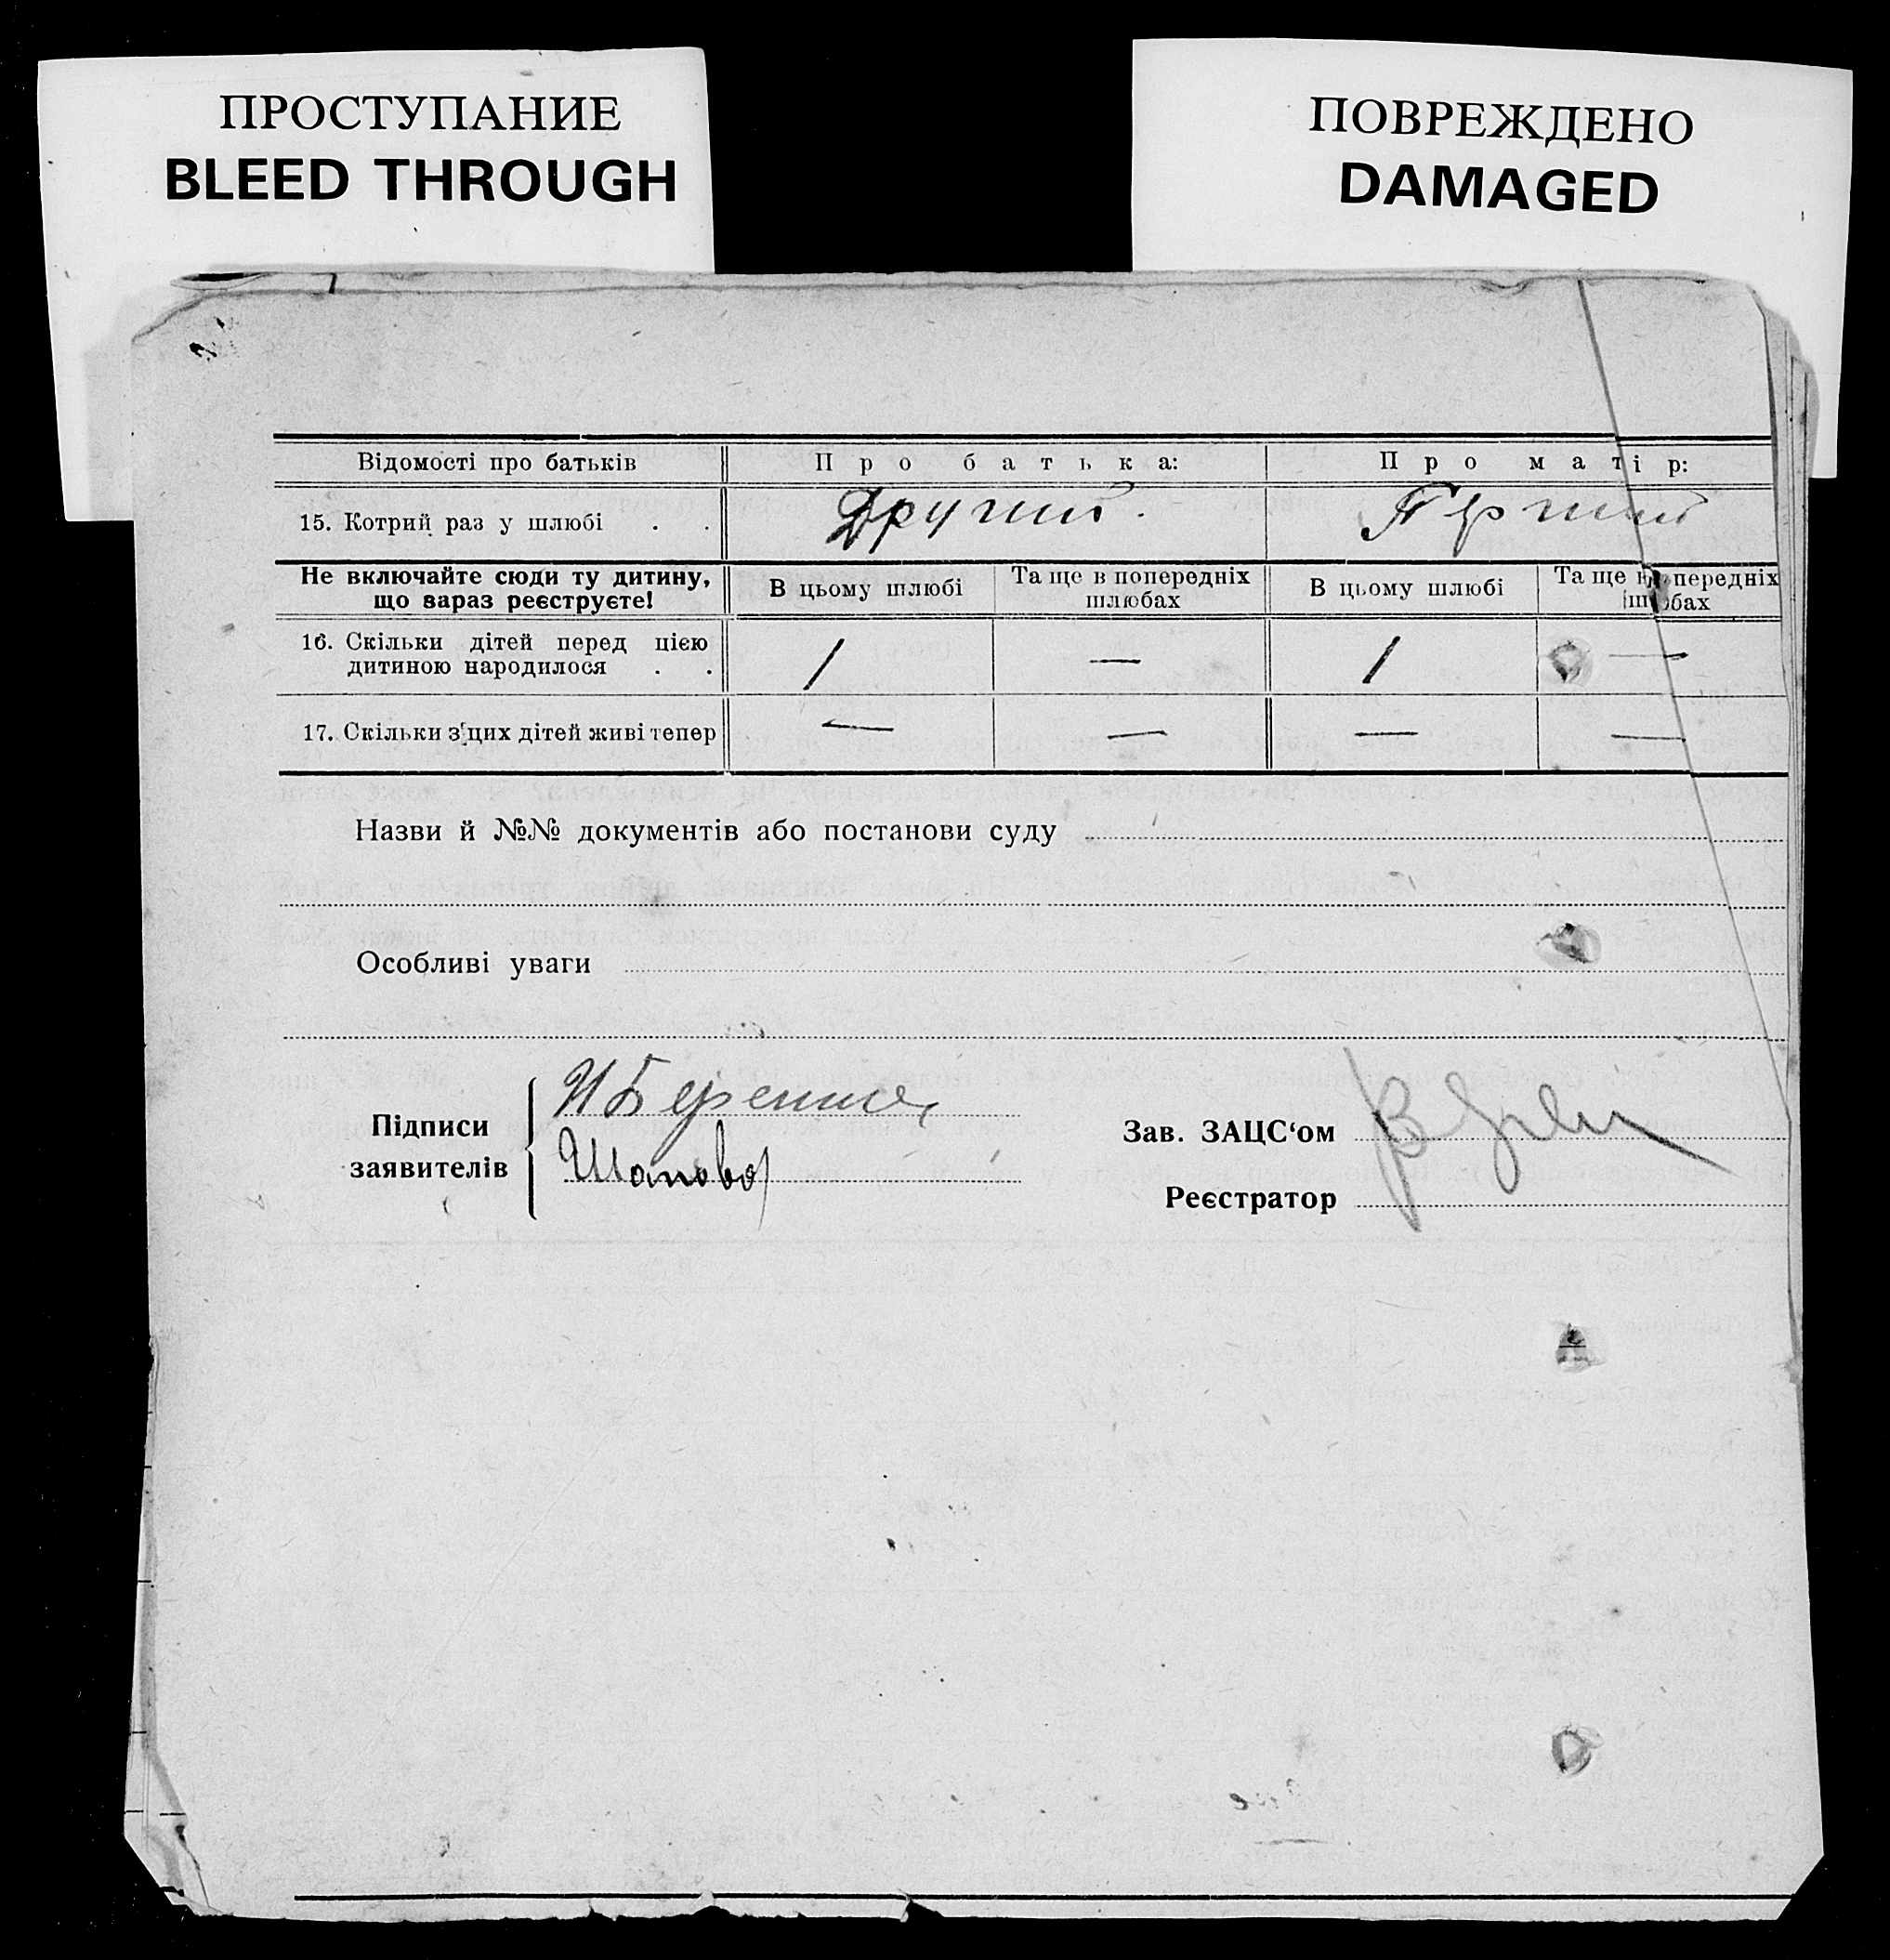 ПРОСТУПАНИЕ
BLEED THROUGH
ПОВРЕЖДЕНО
DAMAGED
Відомості про батьків Про батька: Про матір:
15. Котрий раз у шлюбі . . Другий. Перший
Не включайте сюди ту дитину, що зараз реєструєте! В цьому шлюбі Та ще в попередніх шлюбах В цьому шлюбі Та ще в попередніх шлюбах
16. Скільки дітей перед цією
дитиною народилося . . 1 — 1 —
17. Скільки з цих дітей живі тепер — — — —
Назви й №№ документів або постанови суду
Особливі уваги
Підписи
заявителів
Зав. ЗАЦС‘ом
Реєстратор